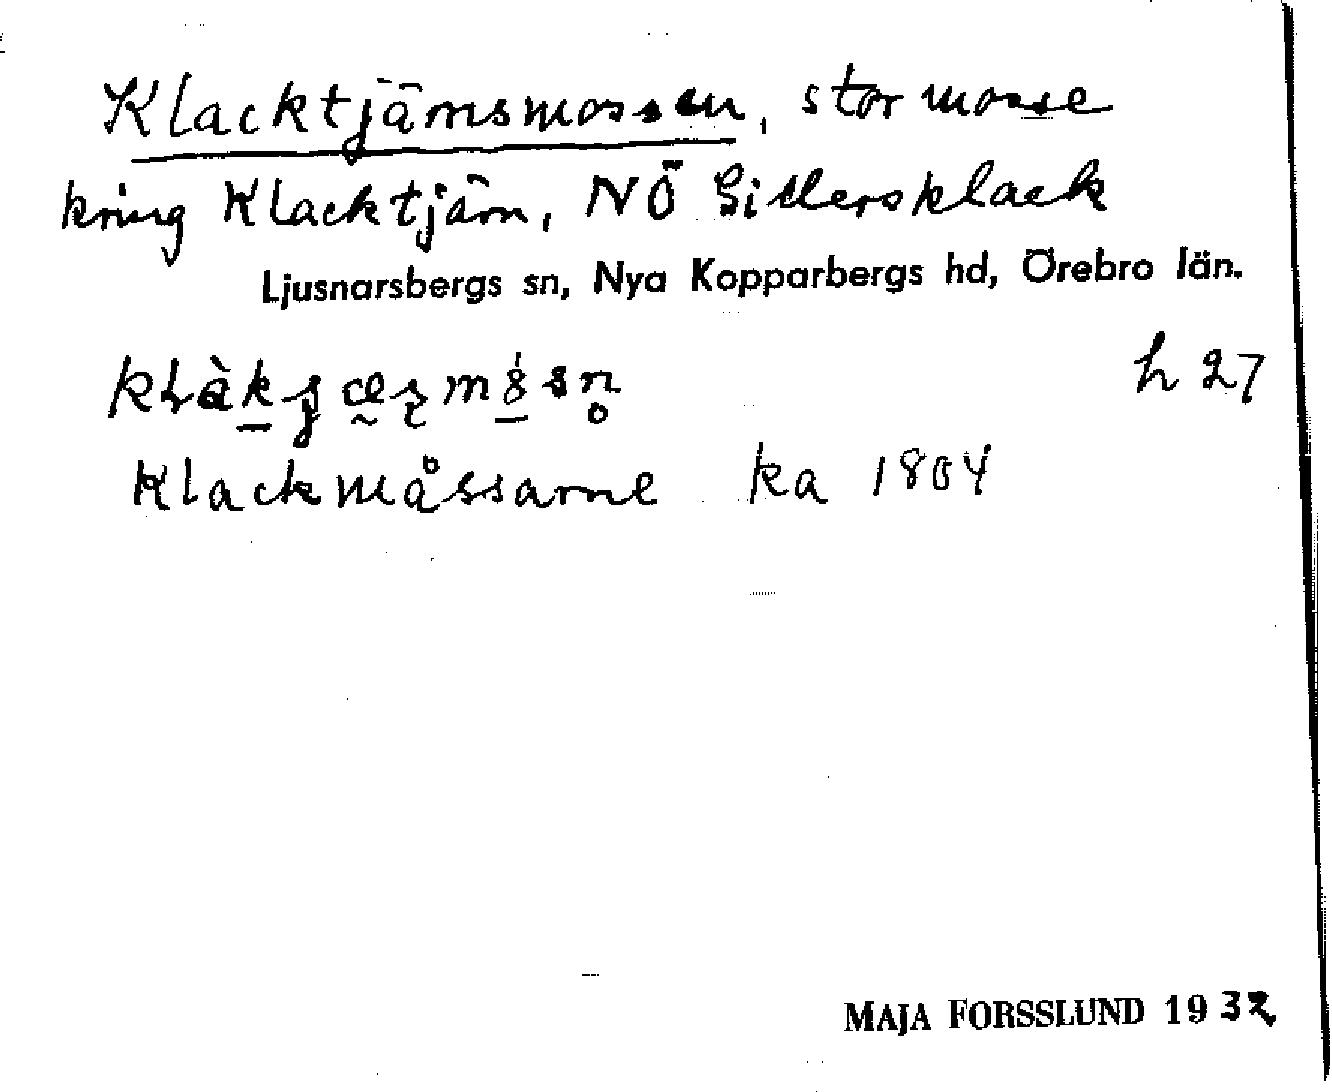 Klacktjärnsmossen, stor mosse
kring Klacktjärn, NÖ Gillersklack
Ljusnarsbergs sn, Nya Kopparbergs hd, Örebro län.
h 27
Klackmåssarne ka 1804
MAJA FORSSLUND 1932